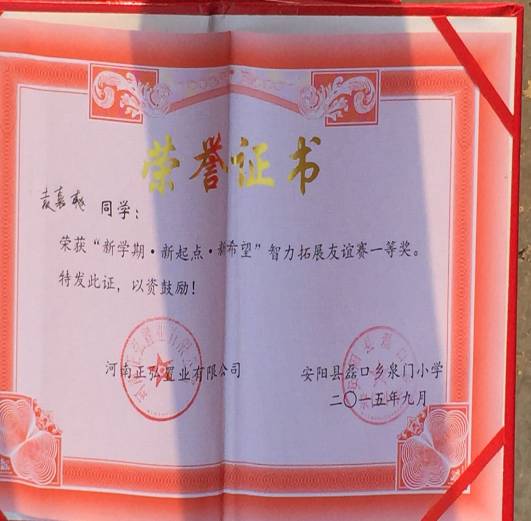 荣誉证书
同学：
荣获“新学期·新起点·新希望”智力拓展友谊赛一等奖。
特发此证，以资鼓励！
河南正弘置业有限公司
安阳县磊口乡泉门小学
二〇一五年九月